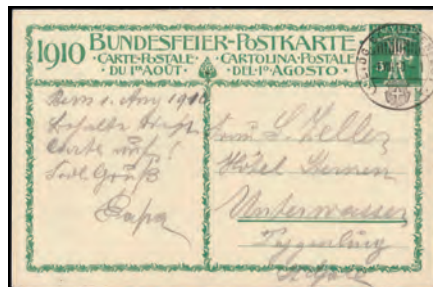 1910 BUNDESFEIER-POSTKARTE
·CARTE·POSTALE· ·CARTOLINA·POSTALE·
DU 1ER AOÛT· DEL·1º AGOSTO·
Bern 1. Aug 1910
behalte diese
Carte auf!
Gruß
Papa
L. Zeller
Hôtel Sternen
Unterwasser
Toggenburg
St. Gallen